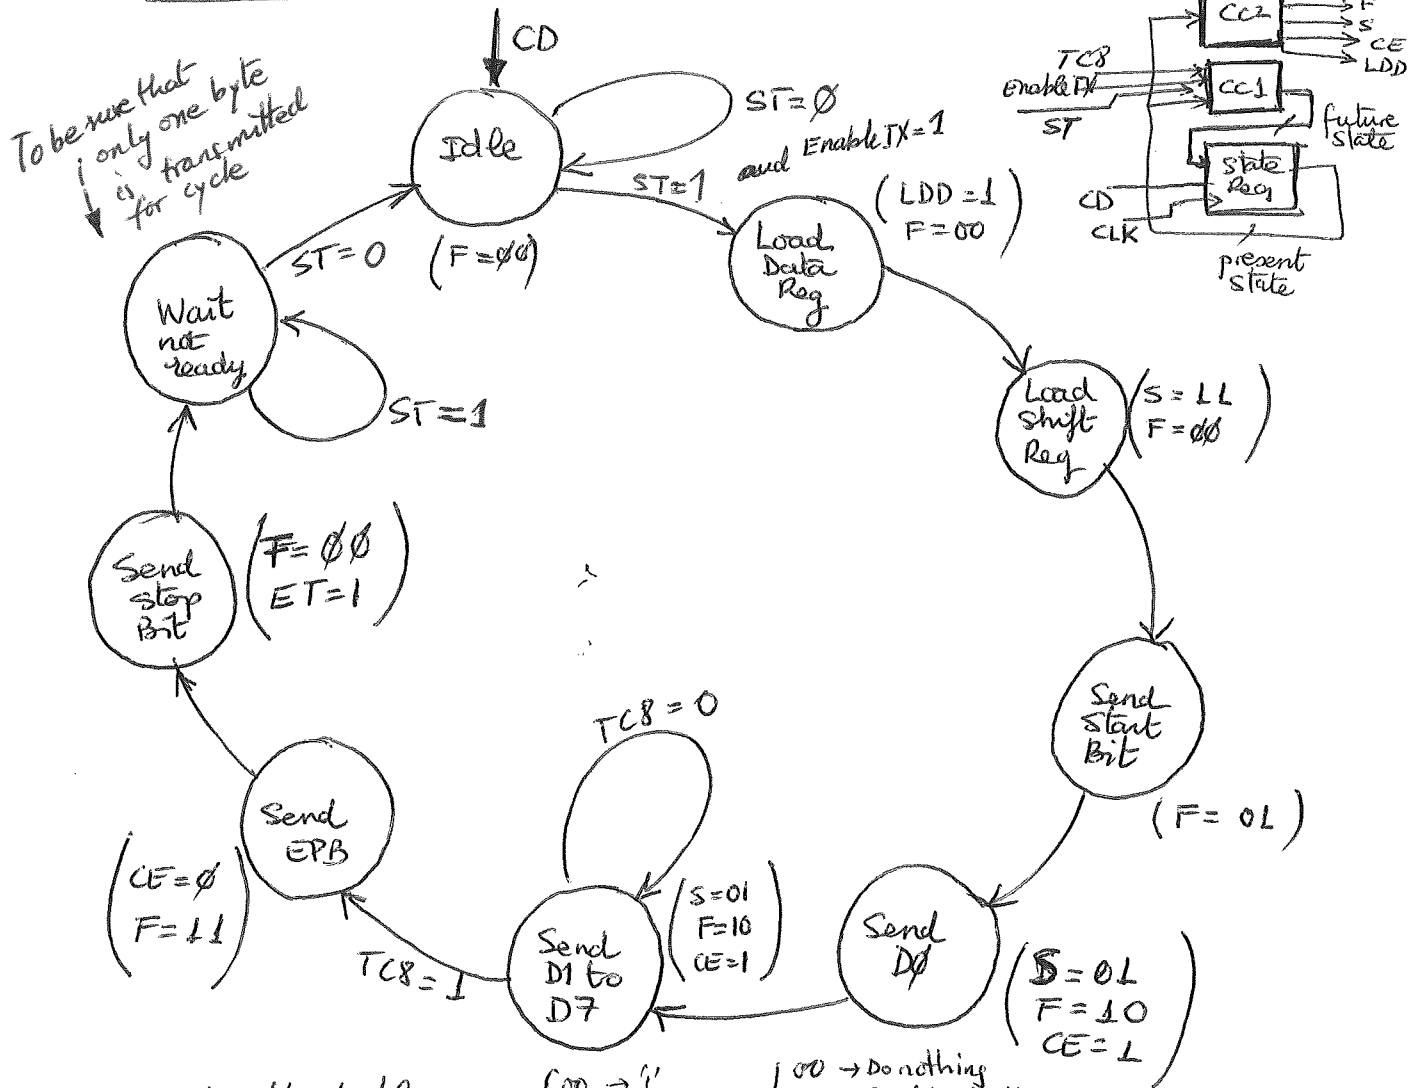 CD
To be sure that
only one byte
is transmitted
for cycle
Idle
(F=00)
ST=0
ST=1 and EnableTX=1
Load
Data
Reg
(LDD=1
F=00)
Load
Shift
Reg
(S=11
F=00)
Send
Start
Bit
(F=01)
Send
D0
(S=01
F=10
CE=1)
Send
D1 to
D7
(S=01
F=10
CE=1)
TC8=0
TC8=1
Send
EPB
(CE=0
F=11)
Send
Stop
Bit
(F=00
ET=1)
Wait
not
ready
ST=1
ST=0
CC2
F
S
CE
LDD
TC8
EnableTX
ST
CC1
future
state
State
Reg
CD
CLK
present
state
00 → '1'
00 → Do nothing